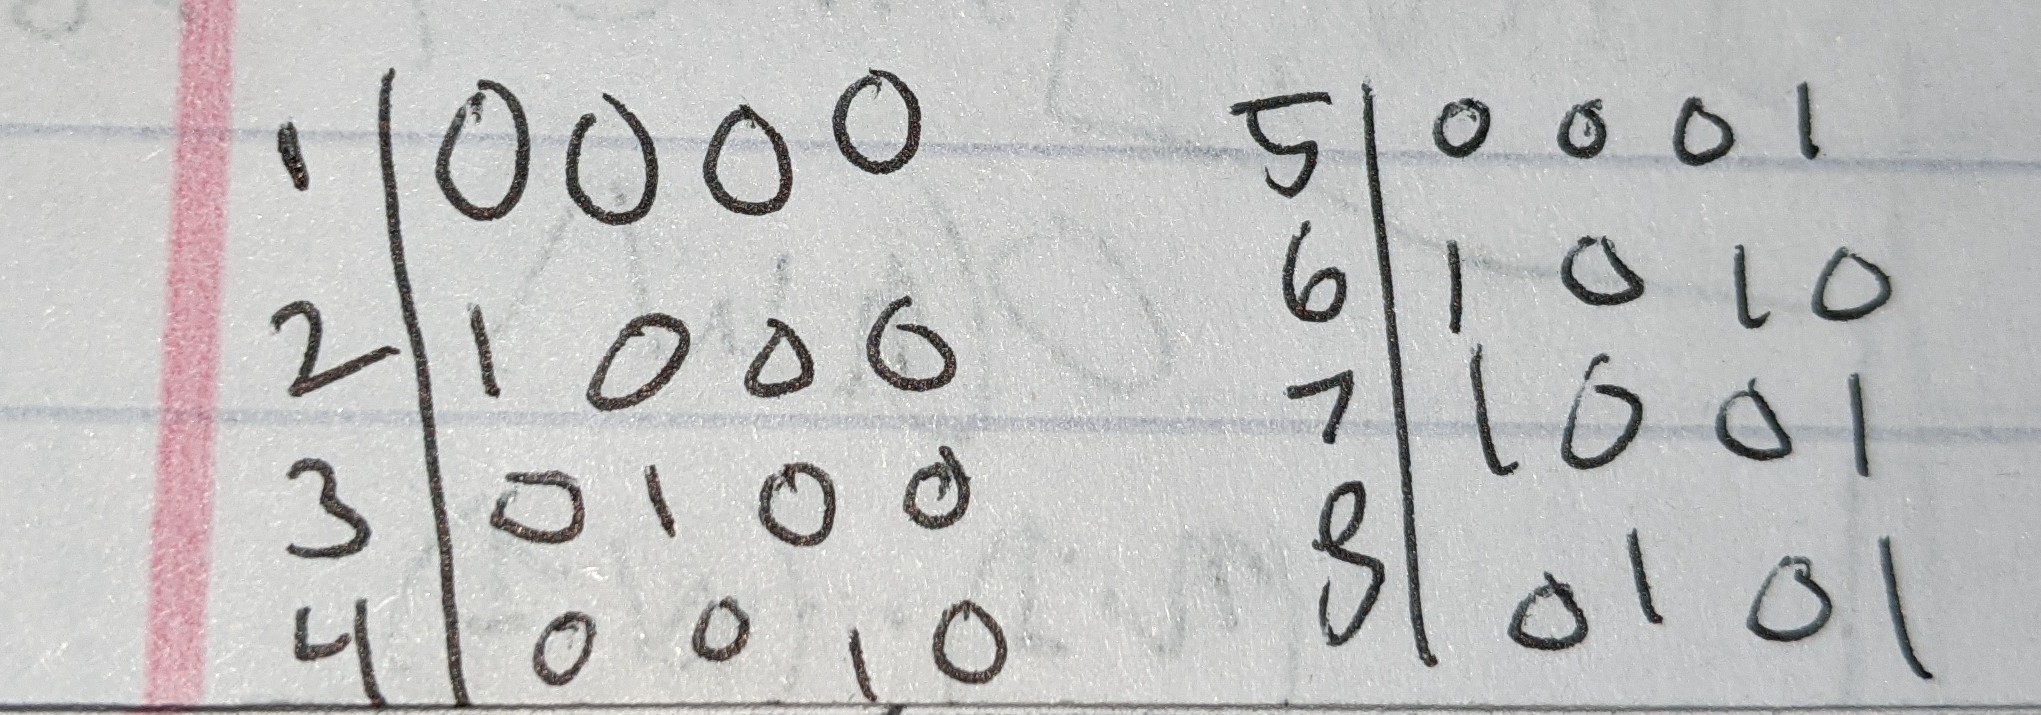 1 | 0 0 0 0
2 | 1 0 0 0
3 | 0 1 0 0
4 | 0 0 1 0
5 | 0 0 0 1
6 | 1 0 1 0
7 | 1 0 0 1
8 | 0 1 0 1